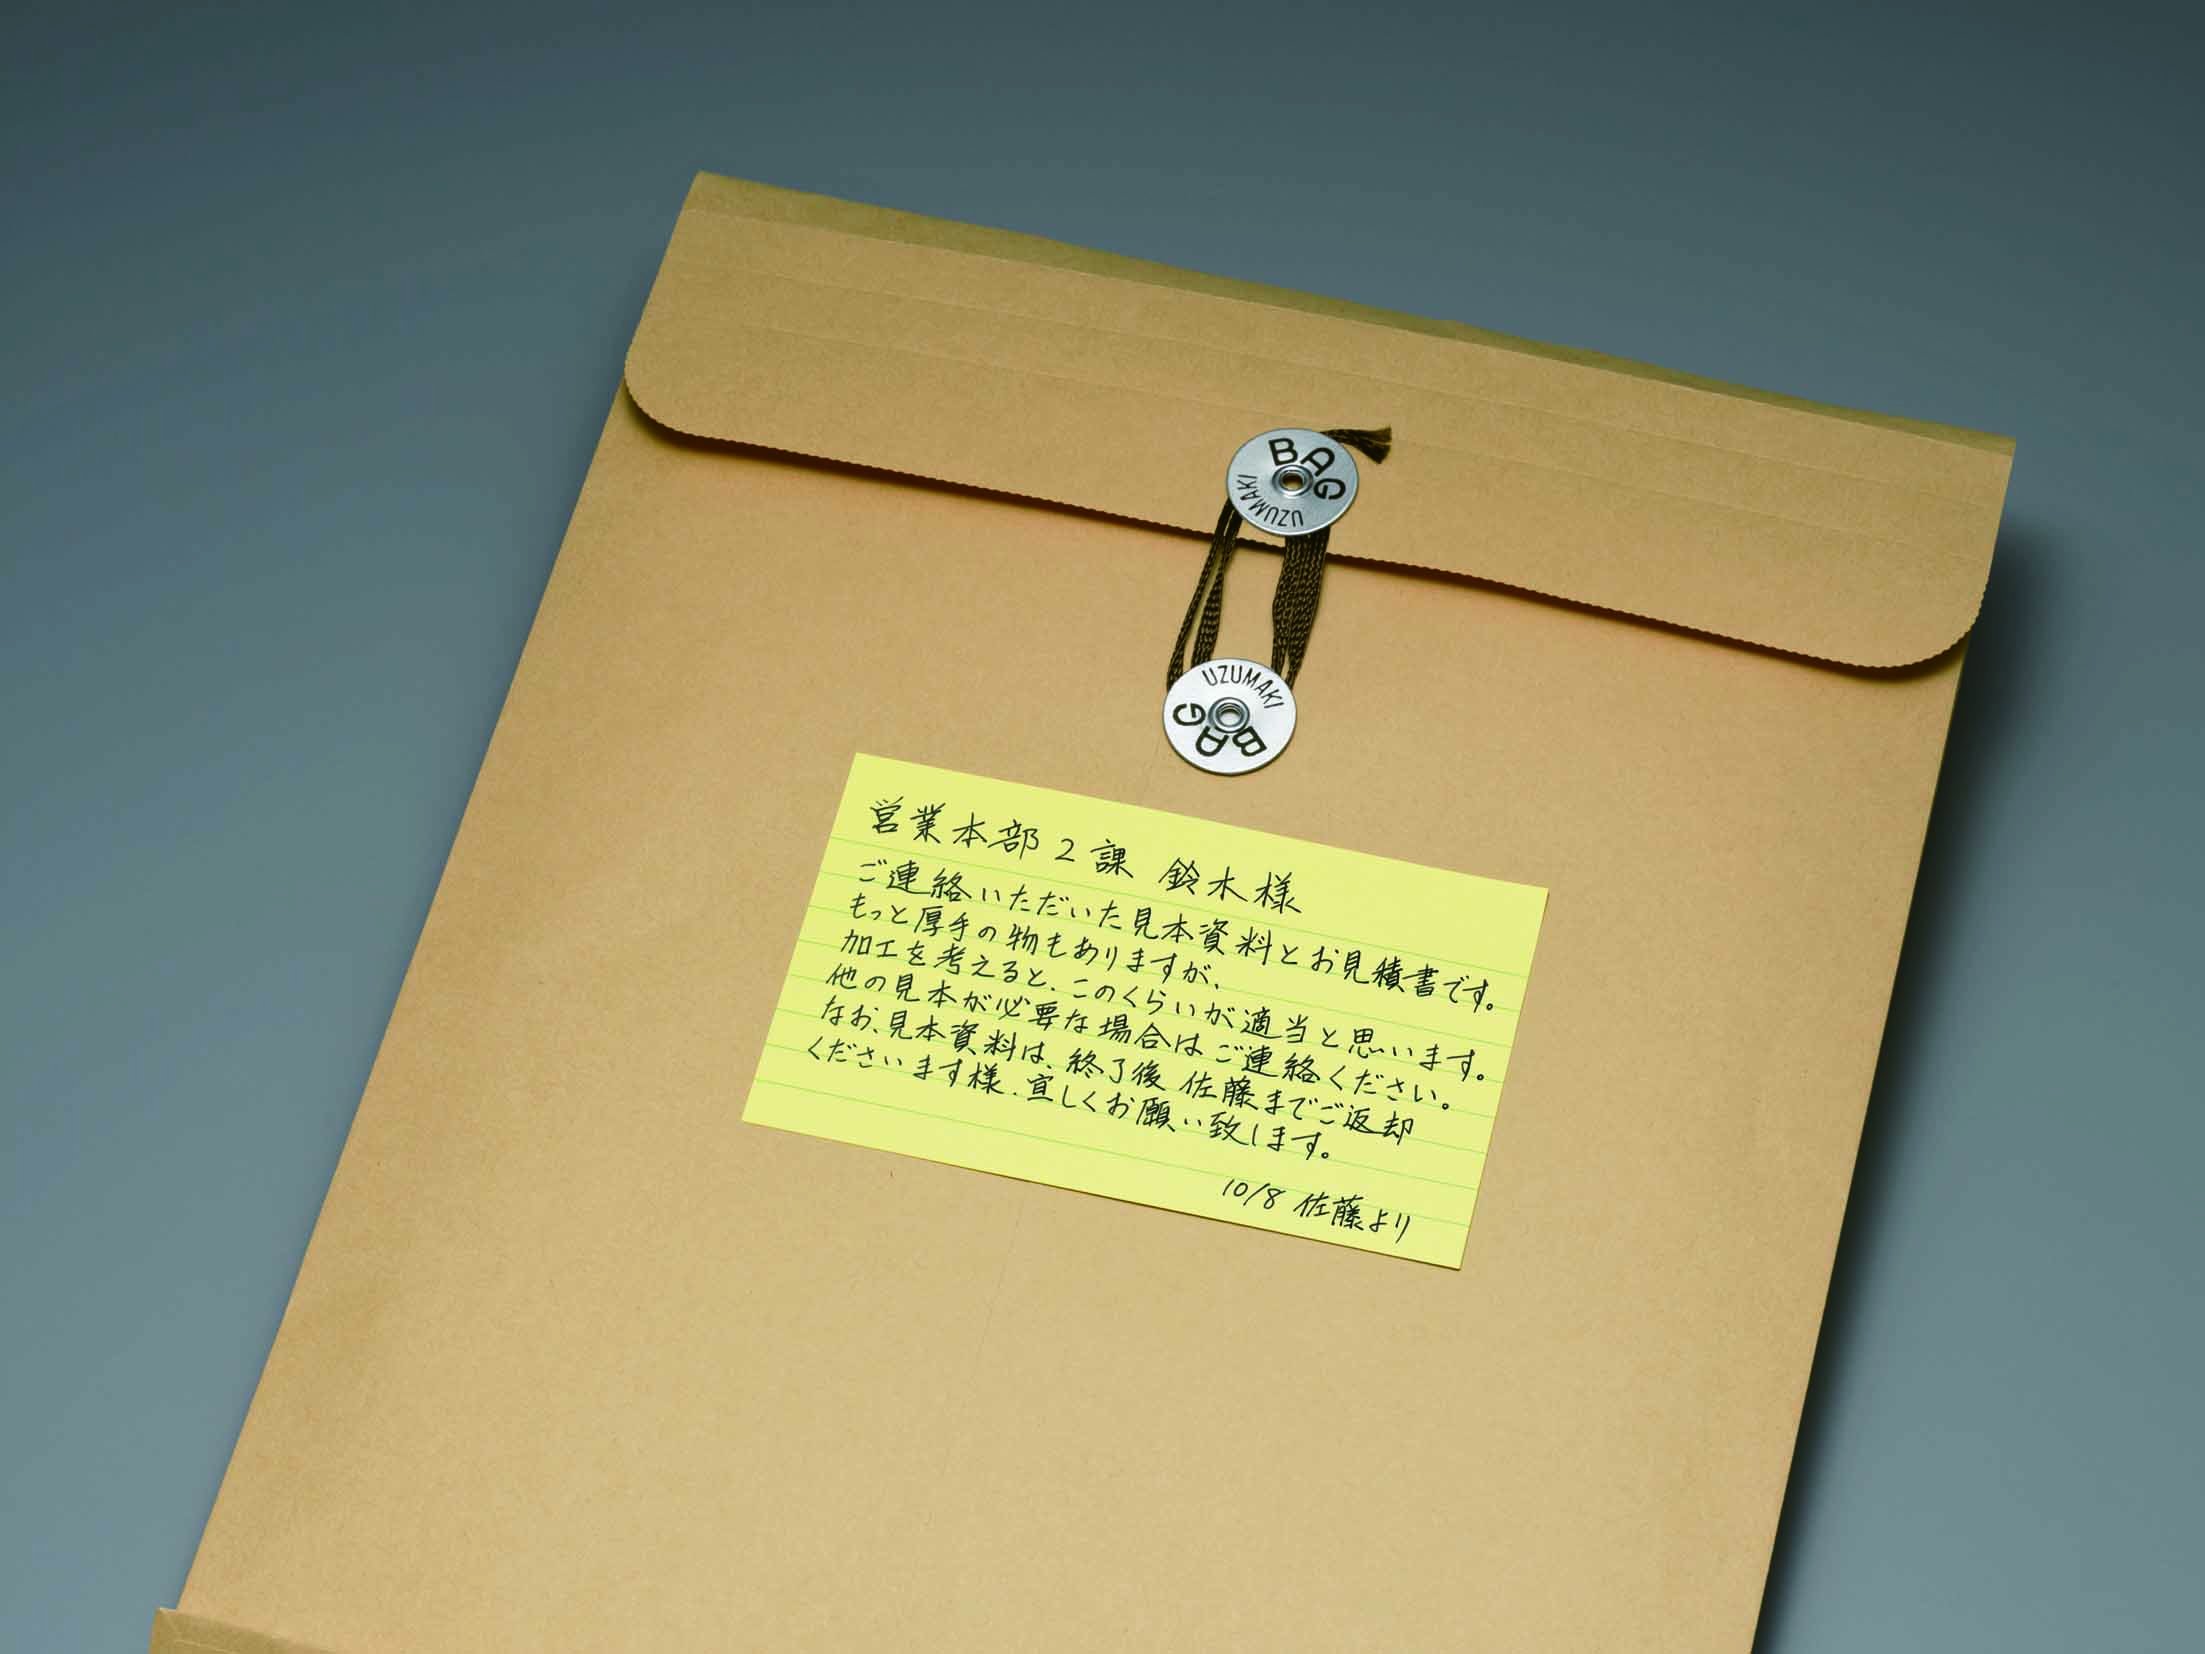 BAG
UZUMAKI
UZUMAKI
BAG
営業本部2課 鈴木様
ご連絡いただいた見本資料とお見積書です。
もっと厚手の物もありますが、
加工を考えると、このくらいが適当と思います。
他の見本が必要な場合はご連絡ください。
なお、見本資料は、終了後 佐藤までご返却
くださいます様、宜しくお願い致します。
10/8 佐藤より